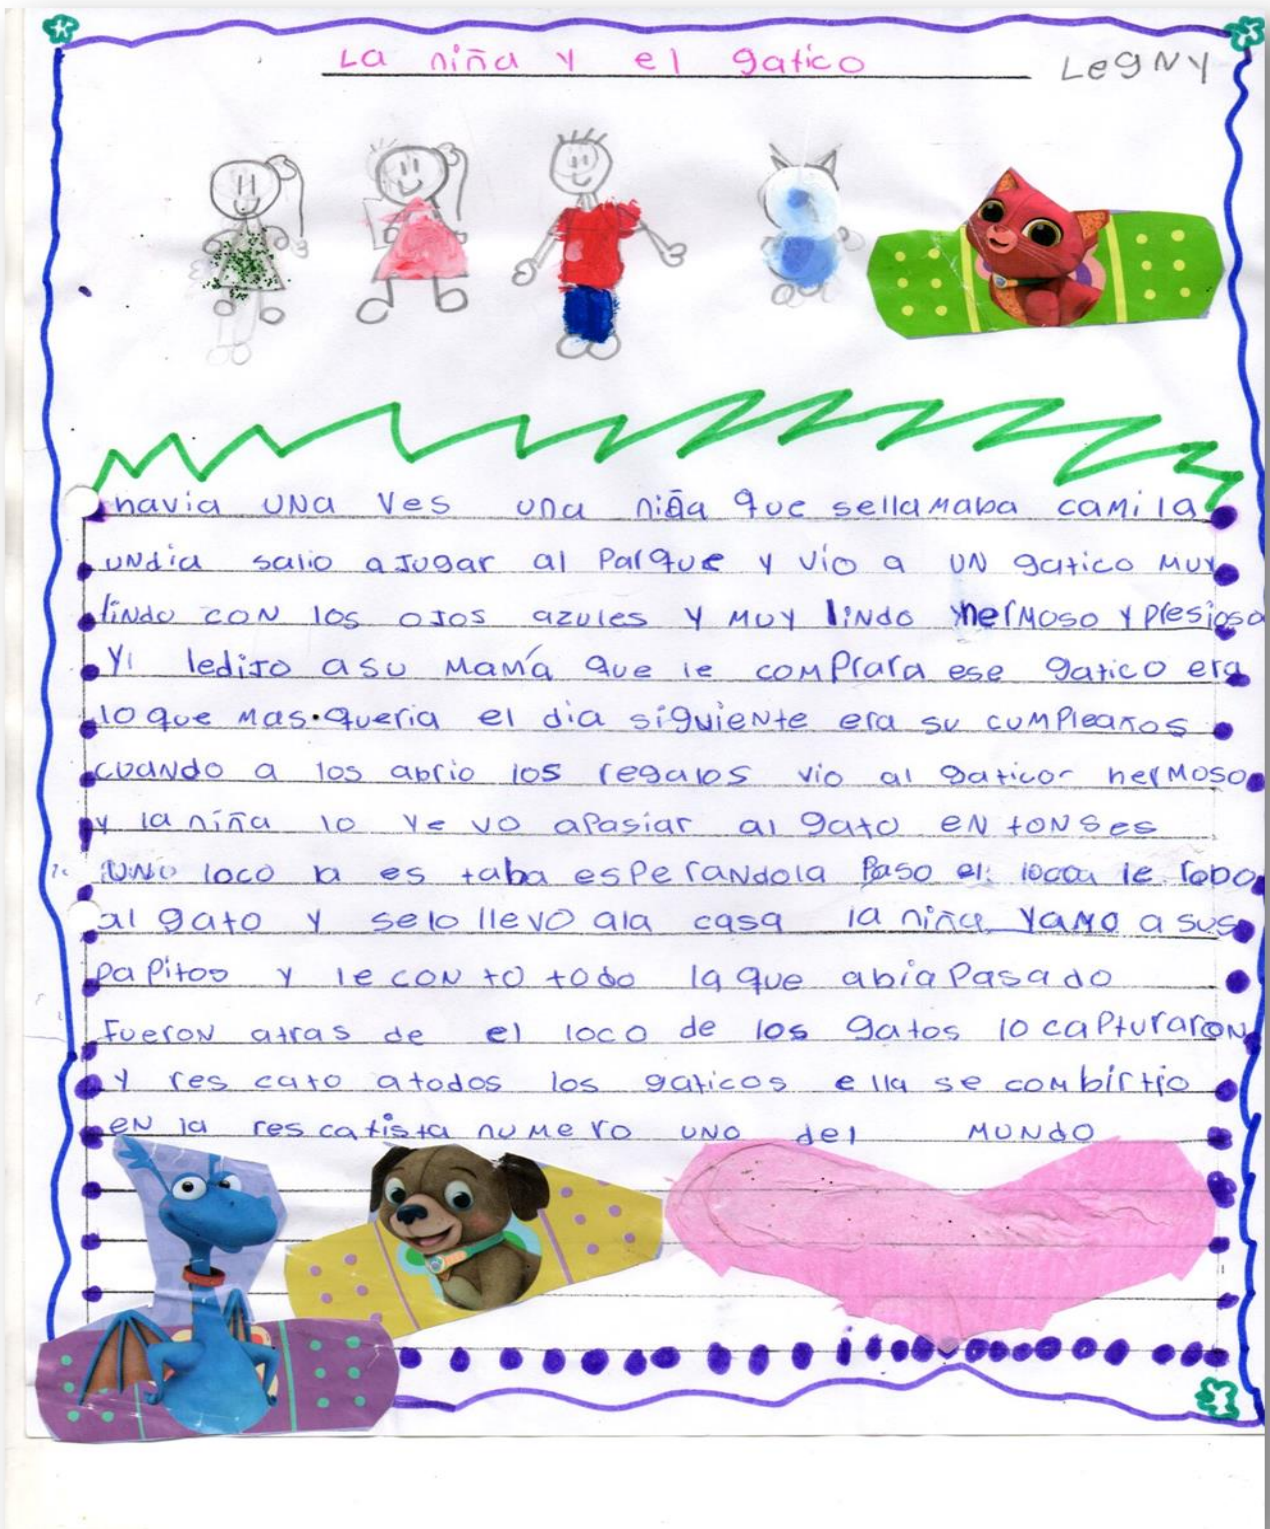 La niña y el gatico
LegNy
havia UNA Ves una niña que sellamaba camila
undia salio a Jugar al Parque y vio a UN gatico MUY
lindo CON los OJOS azules y MUY lindo y herMoso y presioso
Yi lediJo asu Mamá que le comPrara ese gatico era
lo que Mas queria el dia siguiente era su cumpleaños
cuando a los abrio los regalos vio al gaticor herMoso
y la niña lo ye vo apasiar al gato entonses
UNO loco la es taba esperandola Paso el loco le robo
al gato y selo llevo ala casa la niña yaMo a sus
papitos y le con to todo la que abia Pasado
fueron atras de el loco de los gatos lo capturaron
y res cato atodos los gaticos ella se combirtio
en la res catista numero uno del MUNdo